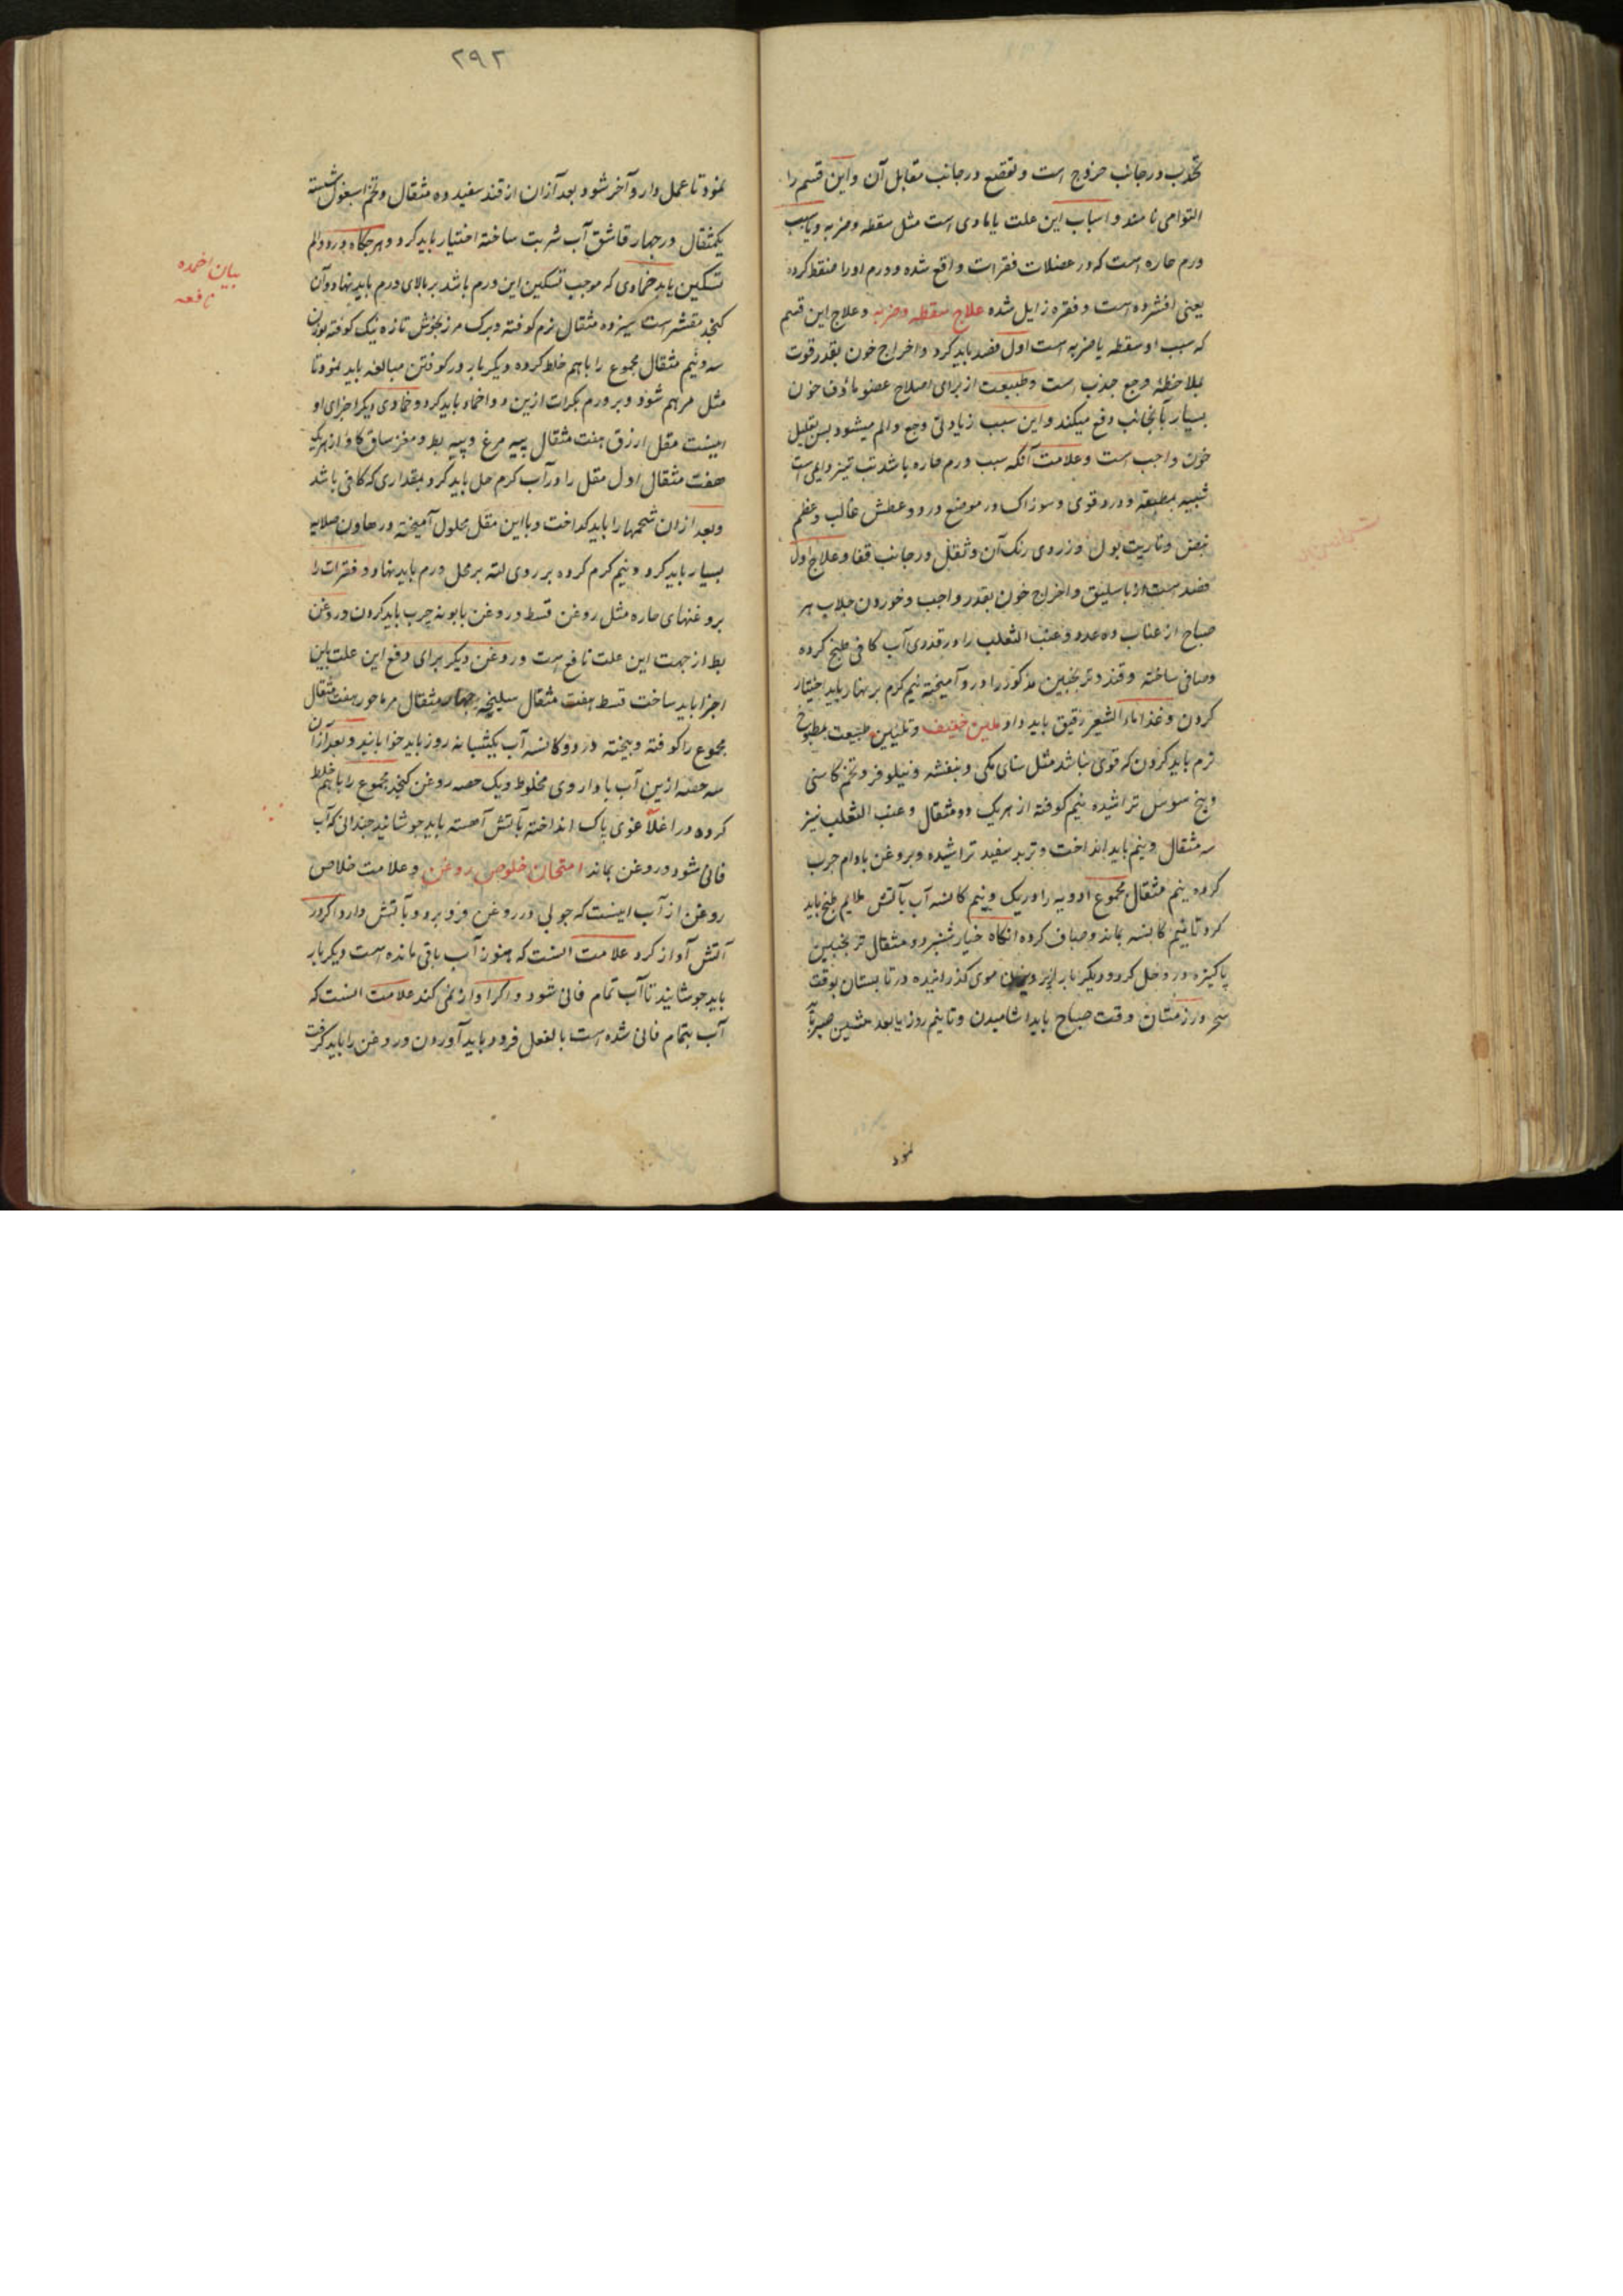 تحدب در جانب خروج است و تقصع در جانب مقابل آن و این قسم را
التوا می نامند و اسباب این علت یا بادی است مثل سقطه و ضربه و یا سبب
ورم حاره است که در عضلات فقرات واقع شده و ورم او را منقط کرده
یعنی افشرده است و فقره زایل شده علاج سقطه و ضربه و علاج این قسم
که سبب او سقطه یا ضربه است اول فصد باید کرد و اخراج خون بقدر قوت
بملاحظه وجع جذب است و طبیعت از برای اصلاح عضو ماؤف خون
بسیار بآنجانب دفع میکند و این سبب زیادتی وجع و الم میشود پس تقلیل
خون واجب است و علامت آنکه سبب ورم حاره باشد تب تیز دایمی است
شبیه بمطبقه و درد قوی و سوزاک در موضع درد و عطش غالب و عظم
نبض و ناریت بول و زردی رنک آن و ثقل در جانب قفا و علاج اول
فصد است از باسلیق و اخراج خون بقدر واجب و خوردن جلاب هر
صباح از عناب ده عدد و عنب الثعلب را در قدری آب کافی طبخ کرده
و صافی ساخته و قند و ترنجبین مذکور را درو آمیخته نیم کرم بر نهار باید اختیار
کردن و غذا ماء الشعیر رقیق باید داد ملین خفیف و تلیین طبیعت بمطبوخ
نرم باید کردن که قوی نباشد مثل سنای مکی و بنفشه و نیلوفر و تخم کاسنی
و بیخ سوسن تراشیده نیم کوفته از هر یک دو مثقال و عنب الثعلب نیز
سه مثقال و نیم باید انداخت و تربد سفید تراشیده و بروغن بادام چرب
کرده نیم مثقال مجموع ادویه را در یک و نیم کاسه آب بآتش ملایم طبخ باید
کرد تا نیم کاسه بماند و صاف کرده انکاه خیارشنبر دو مثقال ترنجبین
پاکیزه درو حل کرد و دیکر بار از پرویزن موی کذرانیده در تابستان بوقت
سحر و در زمستان وقت صباح باید اشامیدن و تا نیم روز یا بعد پیشین صبر باید
نمود
۲۹۲
نمود تا عمل دارو آخر شود بعد از آن از قند سفید ده مثقال و تخم اسبغول شسته
یکمثقال در چهار قاشق آب شربت ساخته اختیار باید کرد و هرجکاه درد و الم
تسکین یابد ضمادی که موجب تسکین این ورم باشد بر بالای ورم باید نهاد و آن
کنجد مقشر است سیزده مثقال نرم کوفته و برک مرزنجوش تازه نیک کوفته بوزن
سه و نیم مثقال مجموع را باهم خلط کرده دیکر بار در کوفتن مبالغه باید نمود تا
مثل مرهم شود و بر ورم بکرات ازین دوا ضماد باید کرد و ضمادی دیکر اجزای او
اینست مقل ارزق هفت مثقال پیه مرغ و پیه بط و مغز ساق کاو از هر یک
هفت مثقال اول مقل را در آب کرم حل باید کرد بمقداری که کافی باشد
و بعد از ان شحمها را باید کداخت و با این مقل محلول آمیخته در هاون صلایه
بسیار باید کرد و نیم کرم کرده بر روی لته بر محل ورم باید نهاد و فقرات را
بروغنهای حاره مثل روغن قسط و روغن بابونه چرب باید کردن و روغن
بط از جهت این علت نافع است و روغن دیکر برای دفع این علت باین
اجزا باید ساخت قسط هفت مثقال سلیخه چهار مثقال مرماحور هفت مثقال
مجموع را کوفته و بیخته در دو کاسه آب یکشبانه روز باید خوابانید و بعد از آن
سه حصه ازین آب با داروی مخلوط و یک حصه روغن کنجد مجموع را باهم خلط
کرده در اغلاغوی پاک انداخته بآتش آهسته باید جوشانید چندانی که آب
فانی شود و روغن بماند امتحان خلوص روغن و علامت خلاص
روغن از آب اینست که چوبی در روغن فرو برد و بآتش دارد اکر در
آتش آواز کرد علامت انست که هنوز آب باقی مانده است دیکر بار
باید جوشانید تا آب تمام فانی شود و اکر آواز نمی کند علامت انست که
آب بتمام فانی شده است بالفعل فرود باید آوردن و روغن را باید کرفت
بیان ضمده
نافعه